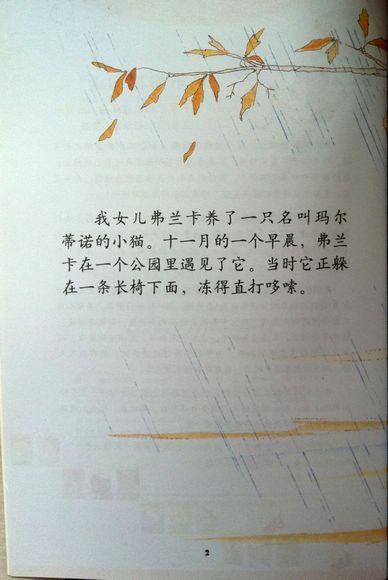 我女儿弗兰卡养了一只名叫玛尔
蒂诺的小猫。十一月的一个早晨，弗兰
卡在一个公园里遇见了它。当时它正躲
在一条长椅下面，冻得直打哆嗦。
2